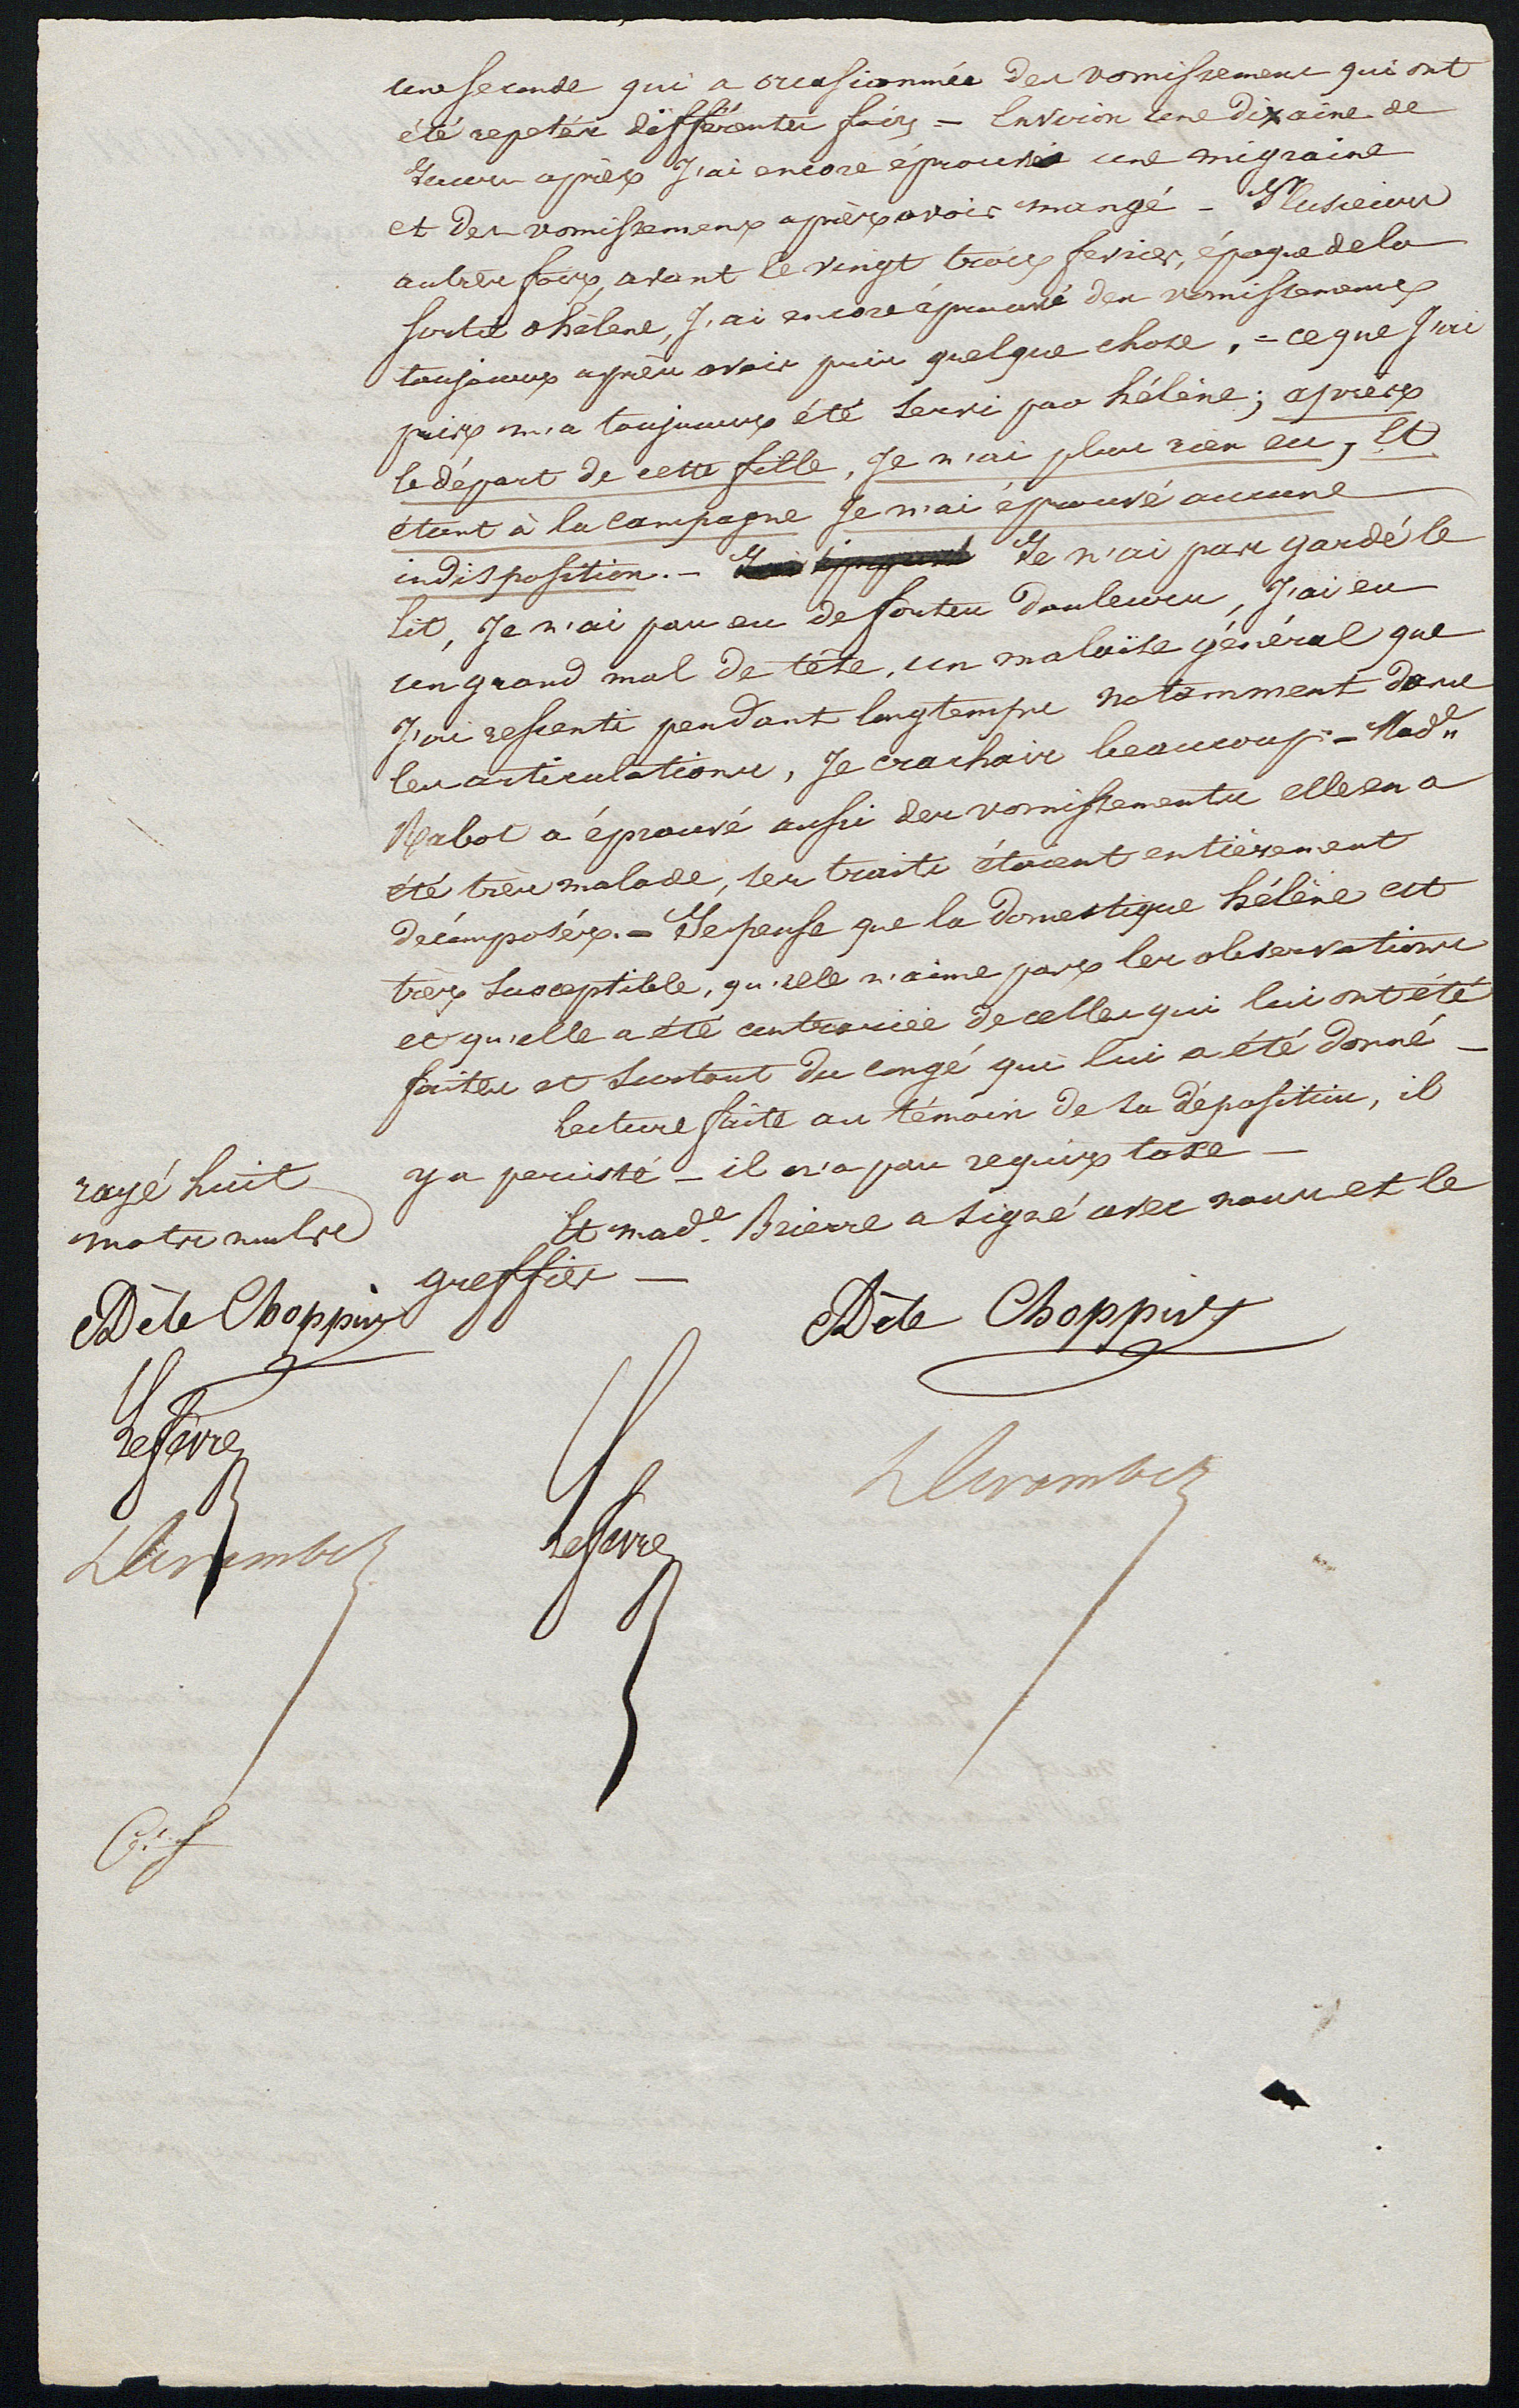 une seconde qui a occasionnée des vomissemens qui ont
été repetés différentes fois = Environ une dixaine de
Jours après J'ai encore éprouvé une migraine
et des vomissemens après avoir mangé - Plusieurs
autres fois, avant le vingt trois fevrier, époque de la
sortie d'hélène, J'ai encore éprouvé des vomissemens
toujours après avoir pris quelque chose. = ce que J'ai
pris m'a toujours été servi par hélène; après
le départ de cette fille, Je n'ai plus rien eu, Et
étant à la campagne Je n'ai éprouvé aucune
indisposition. - Je n'ai pas gardé le
lit, Je n'ai pas eu de fortes douleurs, J'ai eu
un grand mal de tête, un malaise général que
J'ai ressenti pendant longtemps notamment dans
les articulations, Je crachais beaucoup - Made
Rabot a éprouvé aussi des vomissements elle en a
été très malade, ses traits étaient entièrement
décomposés. = Je pense que la domestique hélène est
très susceptible, qu'elle n'aime pas les observations
et qu'elle a été contrariée de celles qui lui ont été
faites et surtout du congé qui lui a été donné -
Lecture faite au témoin de sa déposition, il
y a persisté - il n'a pas requis taxe -
Et made. Brierre a signé avec nous et le
greffier -
rayé huit
mots nuls
Dèle Choppin
Dèle Choppin
Lefèvre
Lefèvre